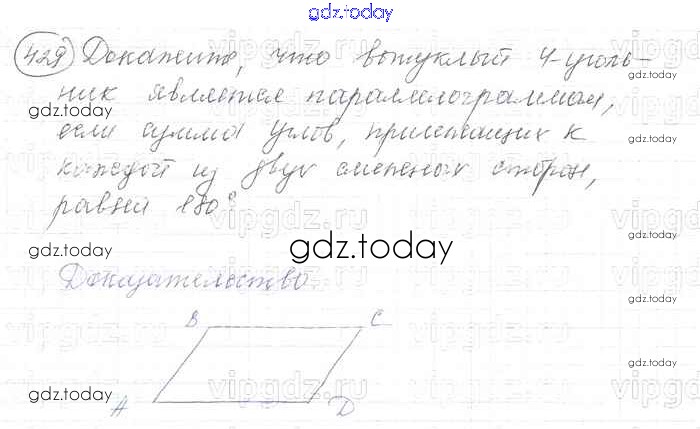 gdz.today
429 Докажите, что выпуклый 4-уголь-
ник является параллелограммом,
если сумма углов, прилежащих к
каждой из двух смежных сторон,
равна 180°
Доказательство.
B C
A D
gdz.today
gdz.today
gdz.today
gdz.today
gdz.today
gdz.today
gdz.today
gdz.today
vipgdz.ru
vipgdz.ru
vipgdz.ru
vipgdz.ru